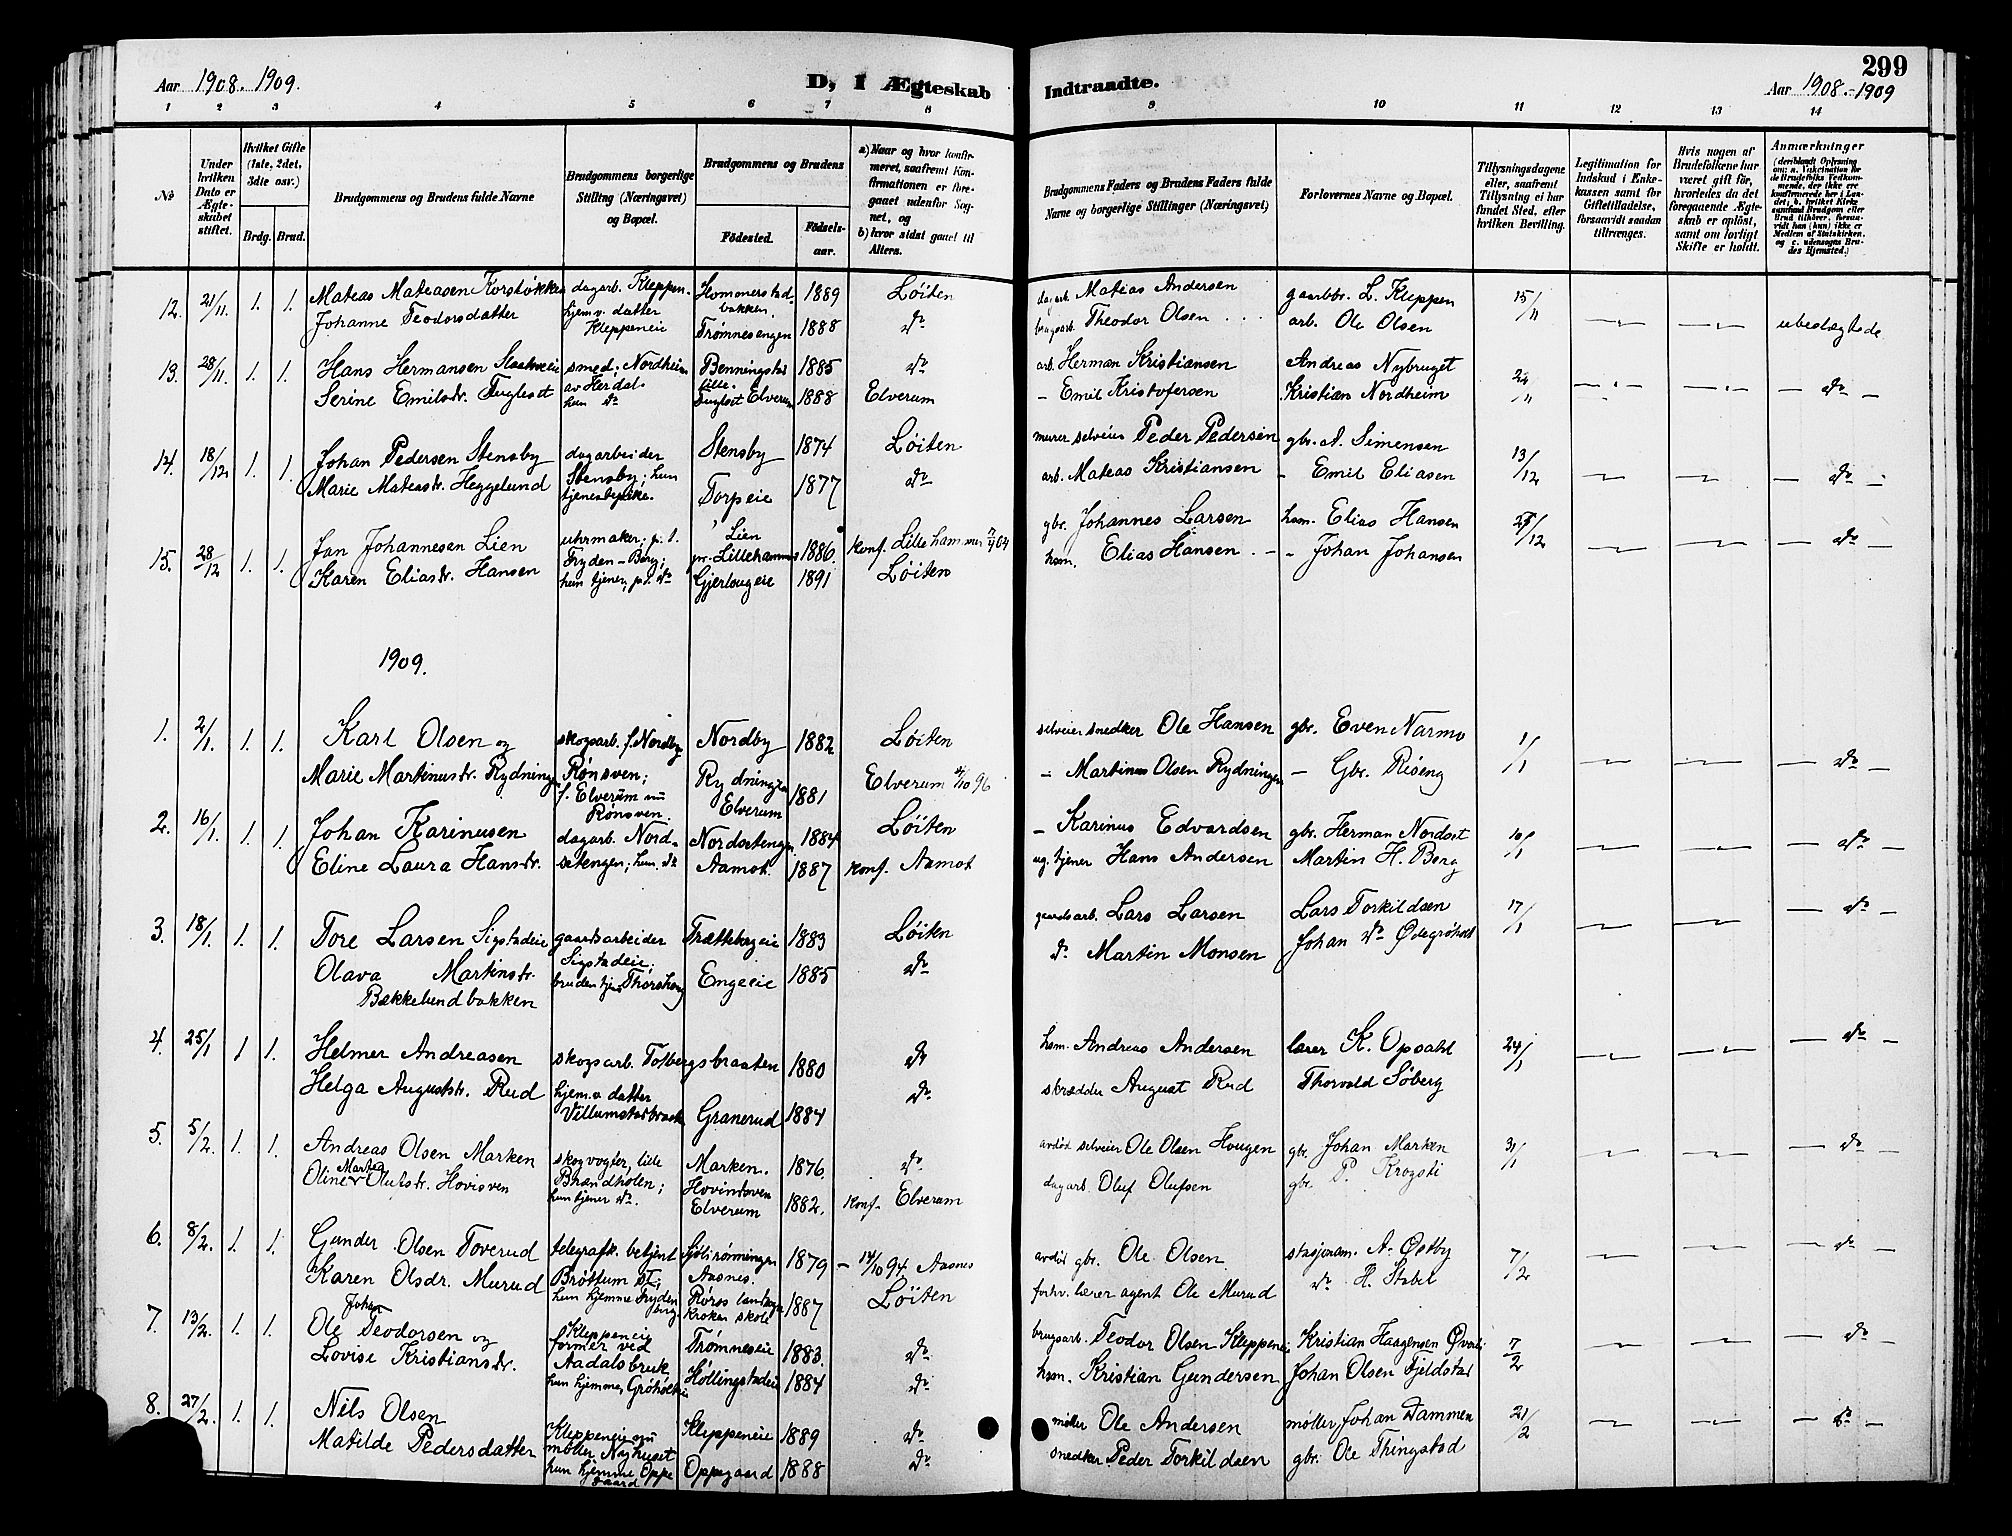 299
Aar 1908. 1909.
D, 1 Ægteskab
Indtraadte.
Aar 1908.-1909
1 2 3 4 5 6 7 8 9 10 11 12 13 14
№
Under hvilken Dato er Ægteskabet stiftet.
Hvilket Gifte (1ste, 2det, 3die osv.)
Brdg. Brud.
Brudgommens og Brudens fulde Navne
Brudgommens borgerlige Stilling (Næringsvei) og Bopæl.
Brudgommens og Brudens
Fødested.
Fødselsaar.
a) Naar og hvor konfirmeret, saafremt Konfirmationen er foregaaet udenfor Sognet, og
b) hvor sidst gaaet til Alters.
Brudgommens Faders og Brudens Faders fulde Navne og borgerlige Stillinger (Næringsvei)
Forlovernes Navne og Bopæl.
Tillysningsdagene eller, saafremt Tillysning ei har fundet Sted, efter hvilken Bevilling.
Legitimation for Indskud i Enkekassen samt for Giftetilladelse, forsaavidt saadan tiltrænges.
Hvis nogen af Brudefolkene har været gift før, hvorledes da det foregaaende Ægteskab er opløst, samt om lovligt Skifte er holdt.
Anmærkninger
12. 21/11. 1. 1. Mateas Mateasen Korsbøkken dagarb. Kleppen. Hommerstadbakken. 1889 Løiten dagarb. Mateas Andersen gaardbr. L. Kleppen 15/11
Johanne Teodorsdatter hjem.v. datter Kleppeneie Trømnesengen 1888 do brugsarb. Theodor Olsen arb. Ole Olsen ubeslægtede
13. 28/11. 1. 1. Hans Hermansen smed, Nordheim Benningstad 1885 do arb. Herman Kristiansen Andreas Nybruget
Serine Emilsdr. Fuglset av Herdal hun do Fuglset Elverum 1888 Elverum - Emil Kristofersen Kristian Nordheim 22/11 do
14. 18/12 1. 1. Johan Pedersen Stensby dagarbeider Stensby 1874 Løiten murer selveier Peder Pedersen gbr. A. Simensen 13/12
Marie Mateasdr. Heggelund Stensby; hun tjenestepike. Torpeie 1877 do arb. Mateas Kristiansen - Emil Eliasen do
15. 28/12 1. 1. Jan Johannesen Lien uhrmaker; p. t. Fryden-Berg; Lien pr. Lillehammer 1886. konf. Lillehammer gbr. Johannes Larsen hsm. Elias Hansen
Karen Eliasdr. Hansen hun tjener, p.t. do Gjerlougeie 1891 Løiten hsm. Elias Hansen - Johan Johansen do
1909.
1. 2/1. 1. 1. Karl Olsen og skogsarb. f. Nordby Nordby 1882 Løiten selveier snedker Ole Hansen gbr. Even Narmo 1/1
Marie Martinusdr. Rydningen Rønsven; f. Elverum nu Rønsven. Rydningen Elverum 1881 Elverum - Martinus Olsen Rydningen - Gbr. Riseng do
2. 16/1. 1. 1. Johan Karinusen dagarb. Nord- Nordsetengen 1884 Løiten - Karinus Edvardsen gbr. Herman Nordset 10/1
Eline Laura Hansdr. setengen; hun do Aamot. 1887 konf. Aamot ug. tjener Hans Andersen Martin H. Berg do
3. 18/1. 1. 1. Tore Larsen Sigstadeie gaardsarbeider Trættebergeie 1883 Løiten gaardsarb. Lars Larsen Lars Torkildsen 17/1
Olava Martinsdr. Sigstadeie; Engeeie 1885 do do Martin Monsen Johan do Ødegrøholt do
Bækkelundbakken bruden tjen. Thorshaug
4. 25/1 1 1. Helmer Andreasen skogsarb. Tolbergsbraaten 1880 do hsm. Andreas Andersen lærer K. Opsahl 24/1
Helga Augustdr. Rud hjem.v. datter Granerud 1884 do skrædder August Rud Thorvald Søberg do
5. 5/2. 1. 1. Andreas Olsen Marken skogvogter, lille Marken. 1876 do avdød selveier Ole Olsen Hougen gbr. Johan Marken 31/1
Oline Martea Olufsdr. Hovisven Brandholen; hun tjener do. Elverum 1882. konf. Elverum dagarb. Oluf Olufsen gbr. P. Krogsti do
6. 8/2. 1. 1. Gunder Olsen Toverud telegrafk. betjent 1879 - 14/10 94 Aasnes avdød gbr. Ole Olsen. stasjonsm. A. Østby 7/2
Karen Olsdr. Murud Brøttum St; hun hjemme Frydenberg Aasnes. Røros landsogn Krokan skole 1887 Løiten forhv. lærer agent Ole Murud do H. Stabel do
7. 13/2. 1. 1. Ole Johan Teodorsen og Kleppeneie former ved Trømneseie 1883. do brugsarb. Teodor Olsen Kleppeneie Kristian Haagensen 7/2
Lovise Kristiansdr. Aadalsbruk hun hjemme, Høllingstadeie 1884 do hsm. Kristian Gundersen Johan Olsen Fjeldstad do
8. 27/2. 1. 1. Nils Olsen Kleppeneie nu Kleppeneie 1889 do møller Ole Andersen møller Johan Dammen 21/2
Matilde Pedersdatter møller Nyhuset hun hjemme Oppegaard Oppegaard 1888 do snedker Peder Torkildsen gbr. Ole Thingstad do